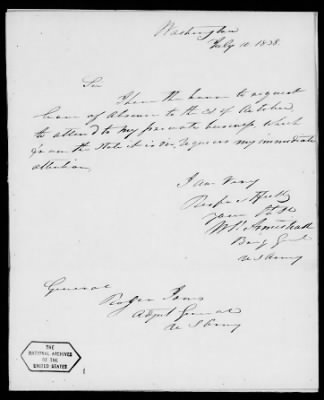 Washington
July 10. 1838.
Sir
I have the honor to request
leave of absence to the of October
to attend to my private business, which
from the State it is in, requires my immediate
attention,
I am Very
Respectfully
Your
W. Armistead
Brig Genl
U S Army
General
Roger Jones
Adjut General
U S Army
THE
NATIONAL ARCHIVES
OF THE
UNITED STATES